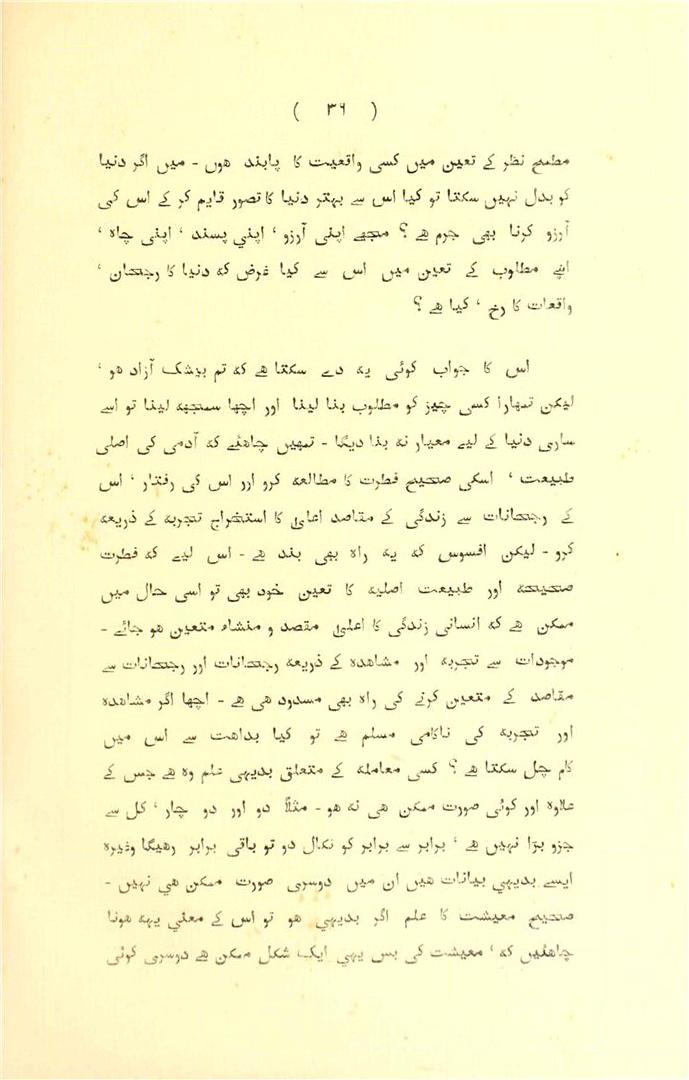 ( ۳۶ )
مطمح نظر کے تعین میں کسی واقعیت کا پابند ھوں - میں اگر دنیا
کو بدل نہیں سکتا تو کیا اس سے بہتر دنیا کا تصور قایم کر کے اس کی
آرزو کرنا بھی جرم ھے ؟ مجھے اپنی آرزو ، اپني پسند ، اپنی چاہ ،
اپنے مطلوب کے تعین میں اس سے کیا غرض کہ دنیا کا رجحان ،
واقعات کا رخ ، کیا ھے ؟
اس کا جواب کوئی یہ دے سکتا ھے کہ تم بیشک آزاد ھو ،
لیکن تمھارا کسی چیز کو مطلوب بنا لینا اور اچھا سمجھہ لینا تو اسے
ساری دنیا کے لیے معیار نہ بنا دیگا - تمہیں چاھئے کہ آدمی کی اصلی
طبیعت ، اسکی صحیح فطرت کا مطالعہ کرو اور اس کی رفتار ، اس
کے رجحانات سے زندگی کے مقاصد اعلیٰ کا استخراج تجربہ کے ذریعہ
کرو - لیکن افسوس کہ یہ راہ بھی بند ھے - اس لیے کہ فطرت
صحیحہ اور طبیعت اصلیہ کا تعین خود بھی تو اسی حال میں
ممکن ھے کہ انسانی زندگی کا اعلیٰ مقصد و منشاء متعین ھو جائے -
موجودات سے تجربہ اور مشاھدہ کے ذریعہ رجحانات اور رجحانات سے
مقاصد کے متعین کرنے کی راہ بھی مسدود ھی ھے - اچھا اگر مشاھدہ
اور تجربہ کی ناکامی مسلم ھے تو کیا بداھت سے اس میں
کام چل سکتا ھے ؟ کسی معاملہ کے متعلق بدیہی علم وہ ھے جس کے
علاوہ اور کوئی صورت ممکن ھی نہ ھو - مثلاً دو اور دو چار ، کل سے
جزو بڑا نہیں ھے ، برابر سے برابر کو نکال دو تو باقی برابر رھیگا وغیرہ
ایسے بدیہي بیانات ھیں ان میں دوسری صورت ممکن ھي نہیں -
صحیح معیشت کا علم اگر بدیہي ھو تو اس کے معني یہہ ھونا
چاھئیں کہ ، معیشت کی بس یہي ایک شکل ممکن ھے دوسری کوئی